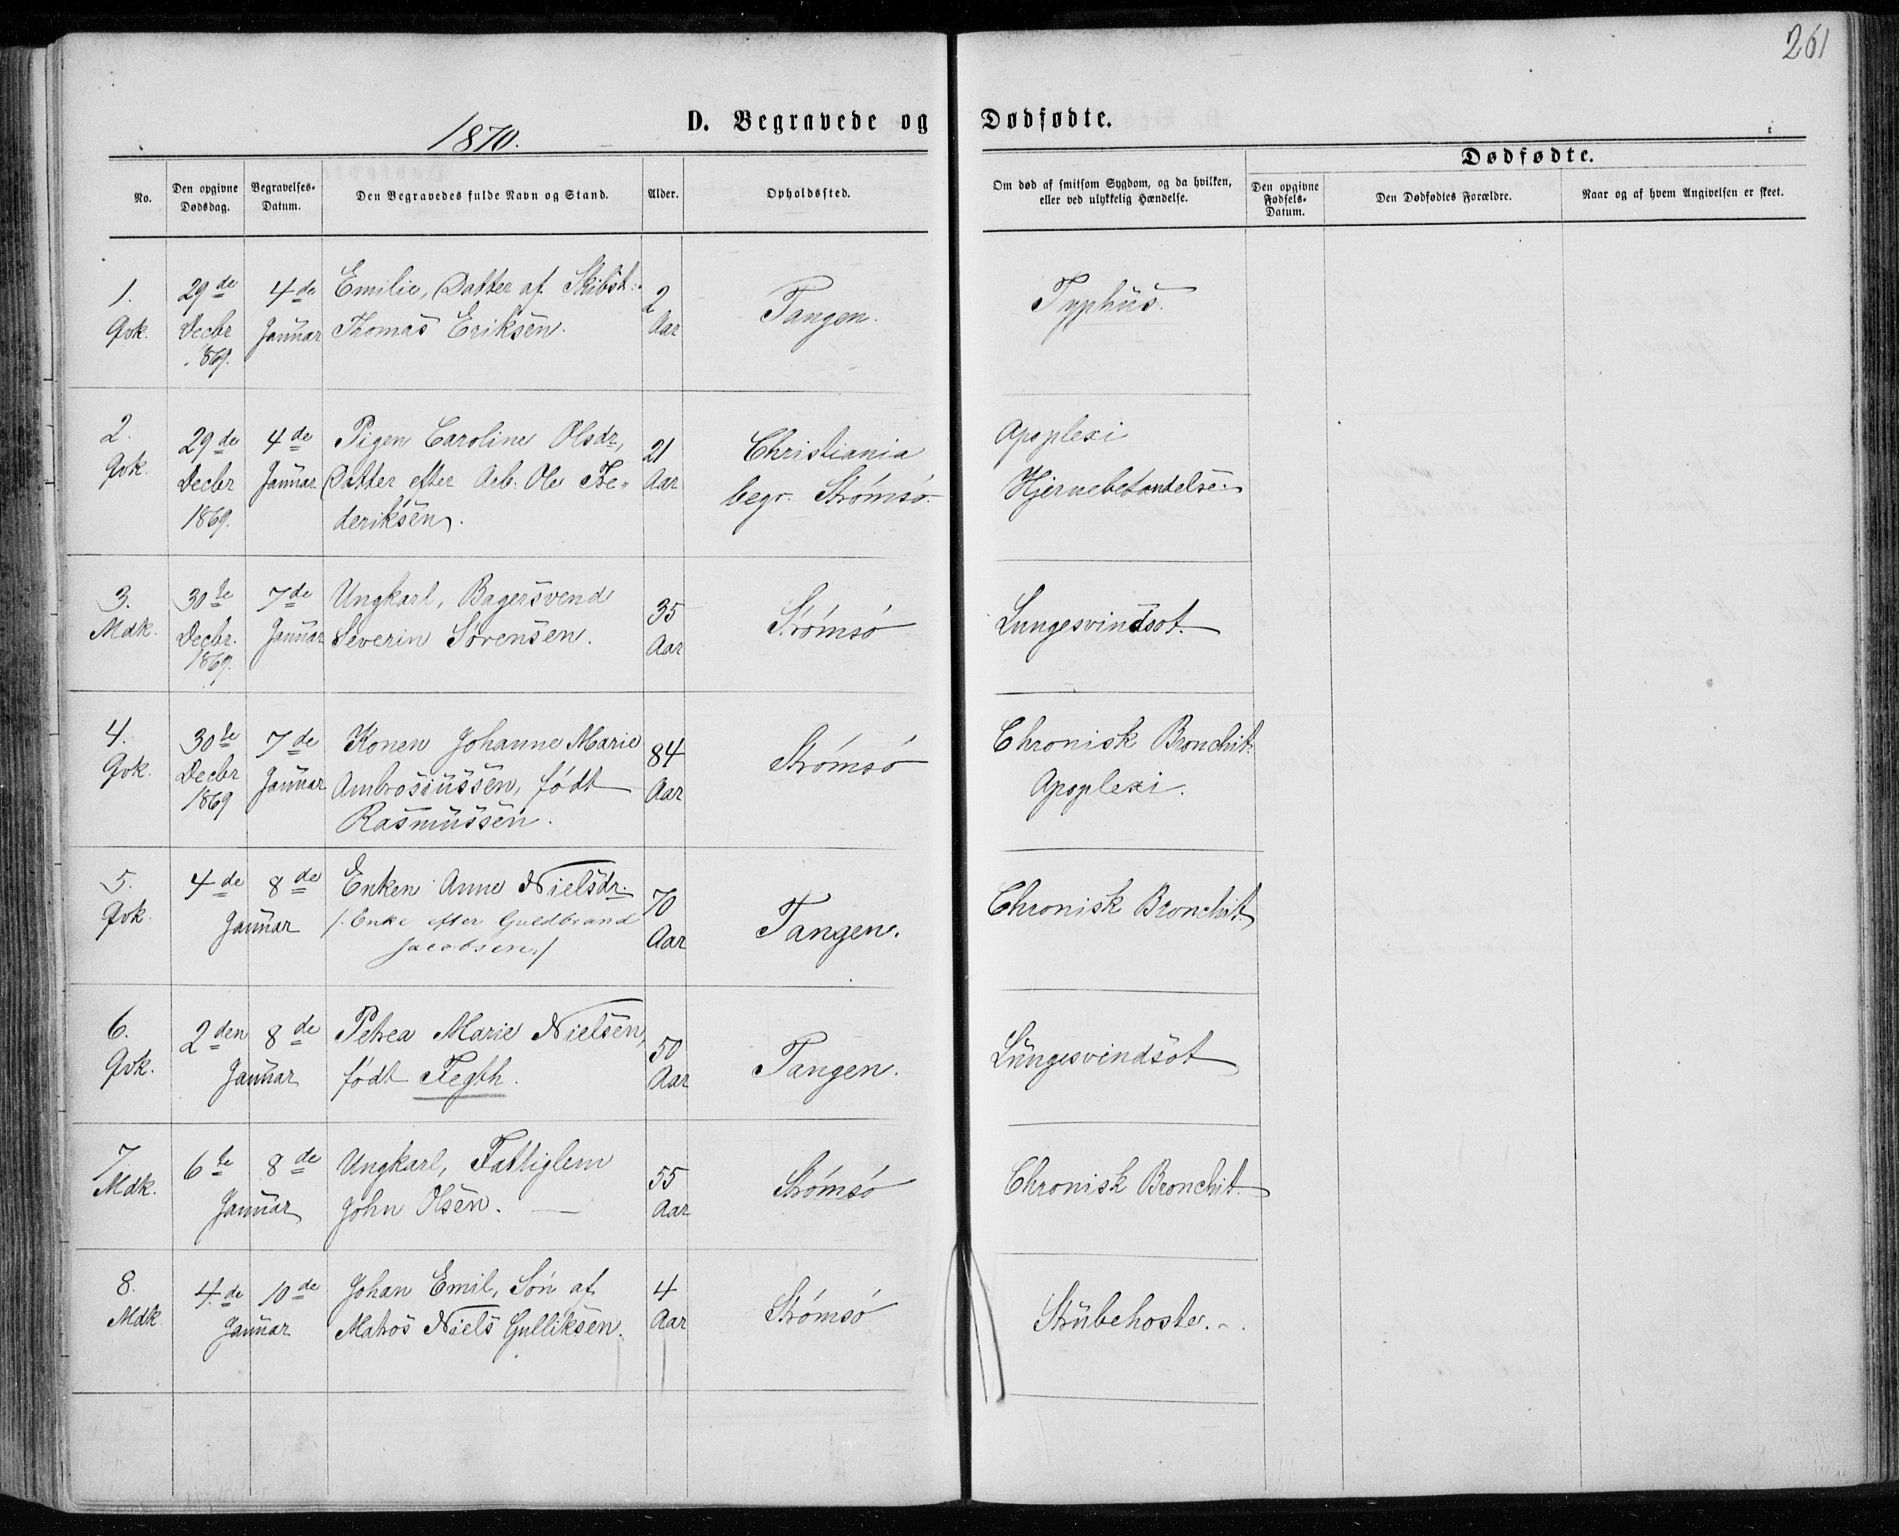 261
1870.
D. Begravede og Dødfødte.
Dødfødte.
No.
Den opgivne Dødsdag.
Begravelses-Datum.
Den Begravedes fulde Navn og Stand.
Alder.
Opholdssted.
Om død af smitsom Sygdom, og da hvilken, eller ved ulykkelig Hændelse.
Den opgivne Fødsels-Datum.
Den Dødfødtes Forældre.
Naar og af hvem Angivelsen er skeet.
1. 29de 4de Emilie, Datter af Skibst: 2 Tangen. Typhus.
Qvk. Decbr Januar Thomas Eriksen. Aar
1869.
2. 29de 4de Pigen Caroline Olsdr, 21 Christiania Apoplexi
Qvk. Decbr Januar Datter efter Arb. Ole Fre- Aar begr. Strømsø. Hjernebetændelse.
1869. deriksen.
3. 30te 7de Ungkarl, Bagersvend 35 Strømsø Lungesvindsot.
Mdk. Decbr. Januar Severin Sørensen. Aar
1869.
4. 30te 7de Konen Johanne Marie 84 Strømsø Chronisk Bronchit.
Qvk. Decbr Januar Ambrosiussen, født Aar Apoplexi.
1869 Rasmussen.
5. 4de 8de Enken Anne Nielsdr. 70 Tangen. Chronisk Bronchit
Qvk. Januar /: Enke efter Guldbrand Aar
Jacobsen./
6. 2den 8de Petrea Marie Nielsen, 50 Tangen. Lungesvindsot
Qvk. Januar født Fegth. Aar
7. 6te 8de Ungkarl, Fattiglem 55 Strømsø Chronisk Bronchit.
Mdk. Januar John Olsen. Aar
8. 4.de 10de Johan Emil, Søn af 4 Strømsø Strubehoste.
Mdk Januar Matros Niels Gulliksen. Aar